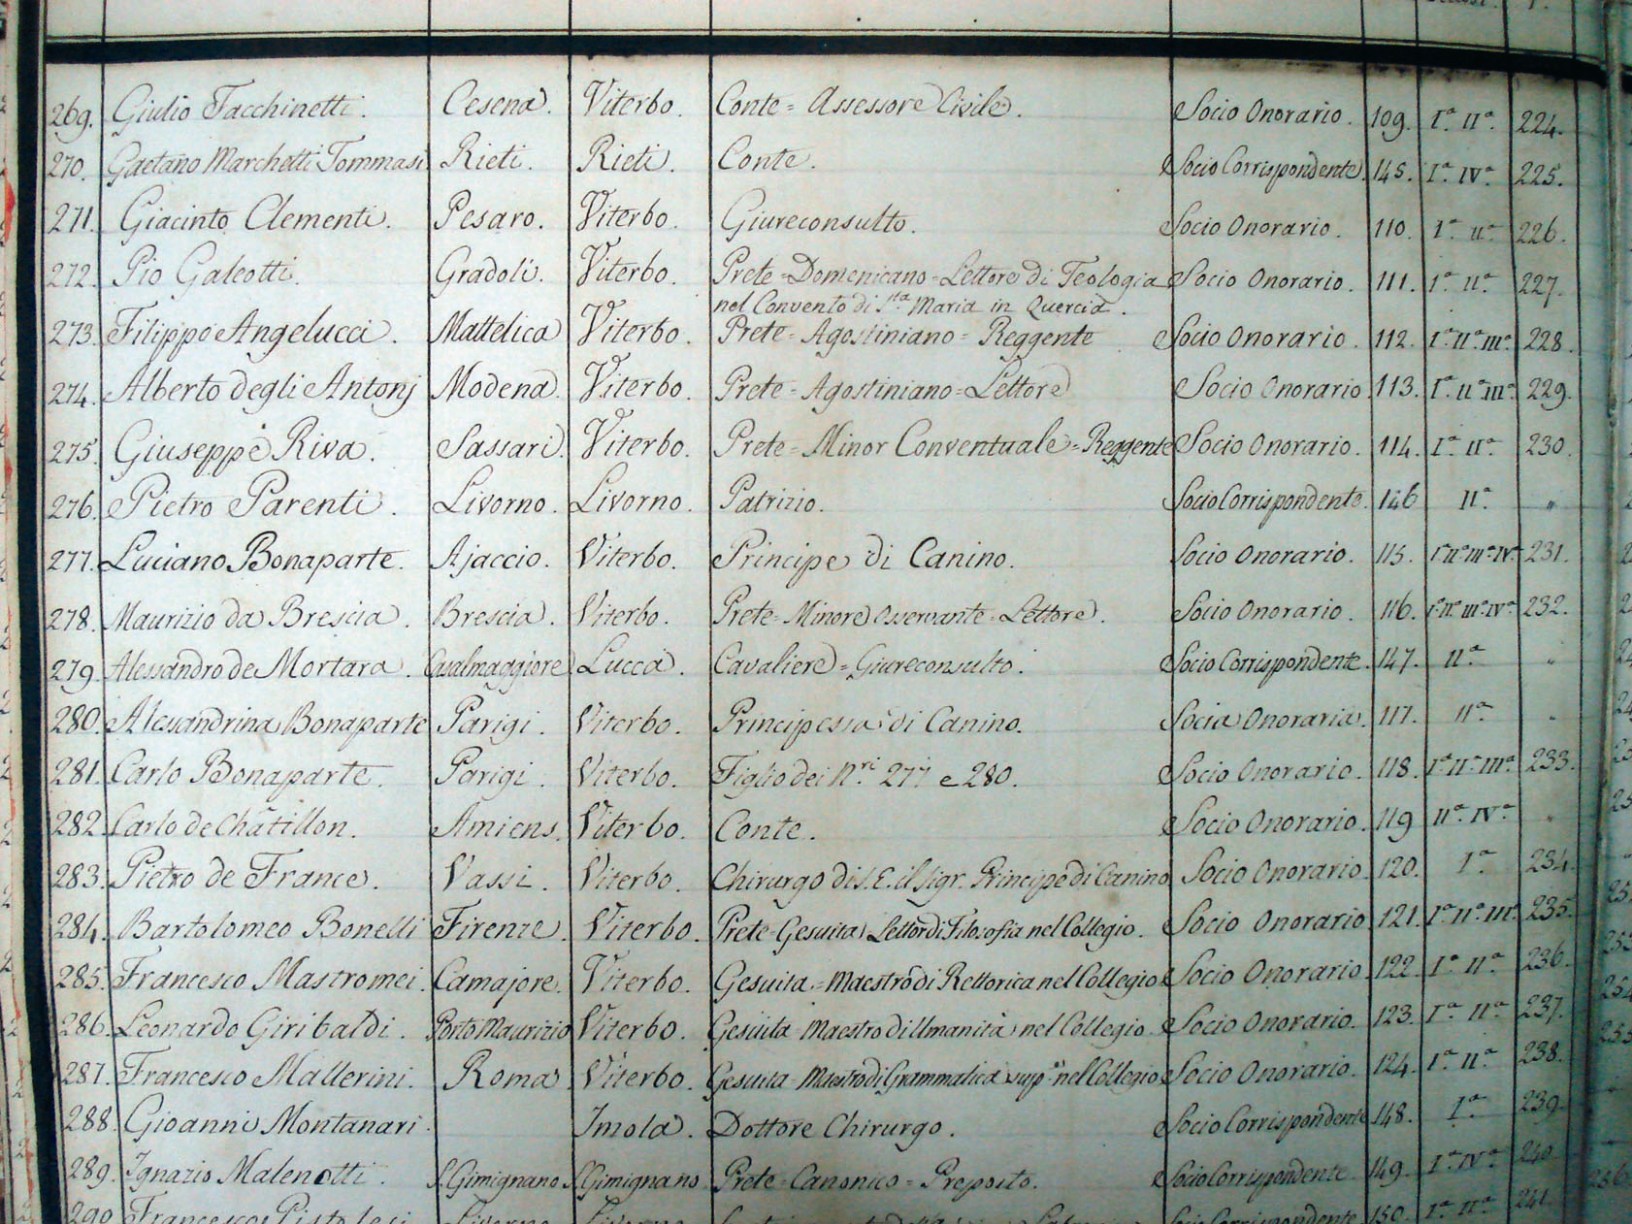 269. Giulio Facchinetti. Cesena. Viterbo. Conte = Assessore Civile. Socio Onorario. 109. Iª. IIª. 224.
270. Gaetano Marchetti Tommasi Rieti. Rieti. Conte. Socio Corrispondente. 145. Iª. IVª. 225.
271. Giacinto Clementi. Pesaro. Viterbo. Giureconsulto. Socio Onorario. 110. Iª. IIª. 226.
272. Pio Galeotti. Gradoli. Viterbo. Prete = Domenicano = Lettore di Teologia Socio Onorario. 111. Iª. IIª. 227.
nel Convento di S.ta Maria in Quercia.
273. Filippo Angelucci. Mattelica Viterbo. Prete = Agostiniano = Reggente Socio Onorario. 112. Iª. IIª. IIIª. 228.
274. Alberto degli Antonj Modena. Viterbo. Prete = Agostiniano = Lettore Socio Onorario. 113. Iª. IIª. IIIª. 229.
275. Giuseppe Riva. Sassari. Viterbo. Prete = Minor Conventuale = Reggente Socio Onorario. 114. Iª. IIª. 230.
276. Pietro Parenti. Livorno. Livorno. Patrizio. Socio Corrispondente. 146 IIª. "
277. Luciano Bonaparte. Ajaccio. Viterbo. Principe di Canino. Socio Onorario. 115. Iª. IIª. IIIª. IVª. 231.
278. Maurizio da Brescia. Brescia. Viterbo. Prete = Minore Osservante = Lettore. Socio Onorario. 116. Iª. IIª. IIIª. IVª. 232.
279. Alessandro de Mortara. Casalmaggiore Lucca. Cavaliere = Giureconsulto. Socio Corrispondente. 147. IIª.
280. Alessandrina Bonaparte Parigi. Viterbo. Principessa di Canino. Socia Onoraria. 117. IIª.
281. Carlo Bonaparte. Parigi. Viterbo. Figlio dei N.ri 277 e 280. Socio Onorario. 118. Iª. IIª. IIIª. 233.
282. Carlo de Châtillon. Amiens. Viterbo. Conte. Socio Onorario. 119 IIª. IVª.
283. Pietro de France. Vassi. Viterbo. Chirurgo di S. E. il Sigr. Principe di Canino Socio Onorario. 120. Iª 234.
284. Bartolomeo Bonelli Firenze. Viterbo. Prete = Gesuita Lettor di Filosofia nel Collegio. Socio Onorario. 121. Iª. IIª. IIIª. 235.
285. Francesco Mastromei. Camajore. Viterbo. Gesuita = Maestro di Rettorica nel Collegio Socio Onorario. 122. Iª. IIª. 236.
286. Leonardo Giribaldi. Porto Maurizio Viterbo. Gesuita = Maestro di Umanità nel Collegio Socio Onorario. 123. Iª. IIª. 237.
287. Francesco Mallerini. Roma Viterbo. Gesuita = Maestro di Grammatica supe nel Collegio Socio Onorario. 124. Iª. IIª. 238.
288. Gioanni Montanari. Imola. Dottore Chirurgo. Socio Corrispondente 148. Iª. 239.
289. Ignazio Malenotti. S. Gimignano S. Gimignano. Prete = Canonico = Preposto. Socio Corrispondente 149. Iª. IVª. 240.
290 Francesco Pistolesi Livorno Livorno Socio Corrispondente 150. Iª. IIª. 241.